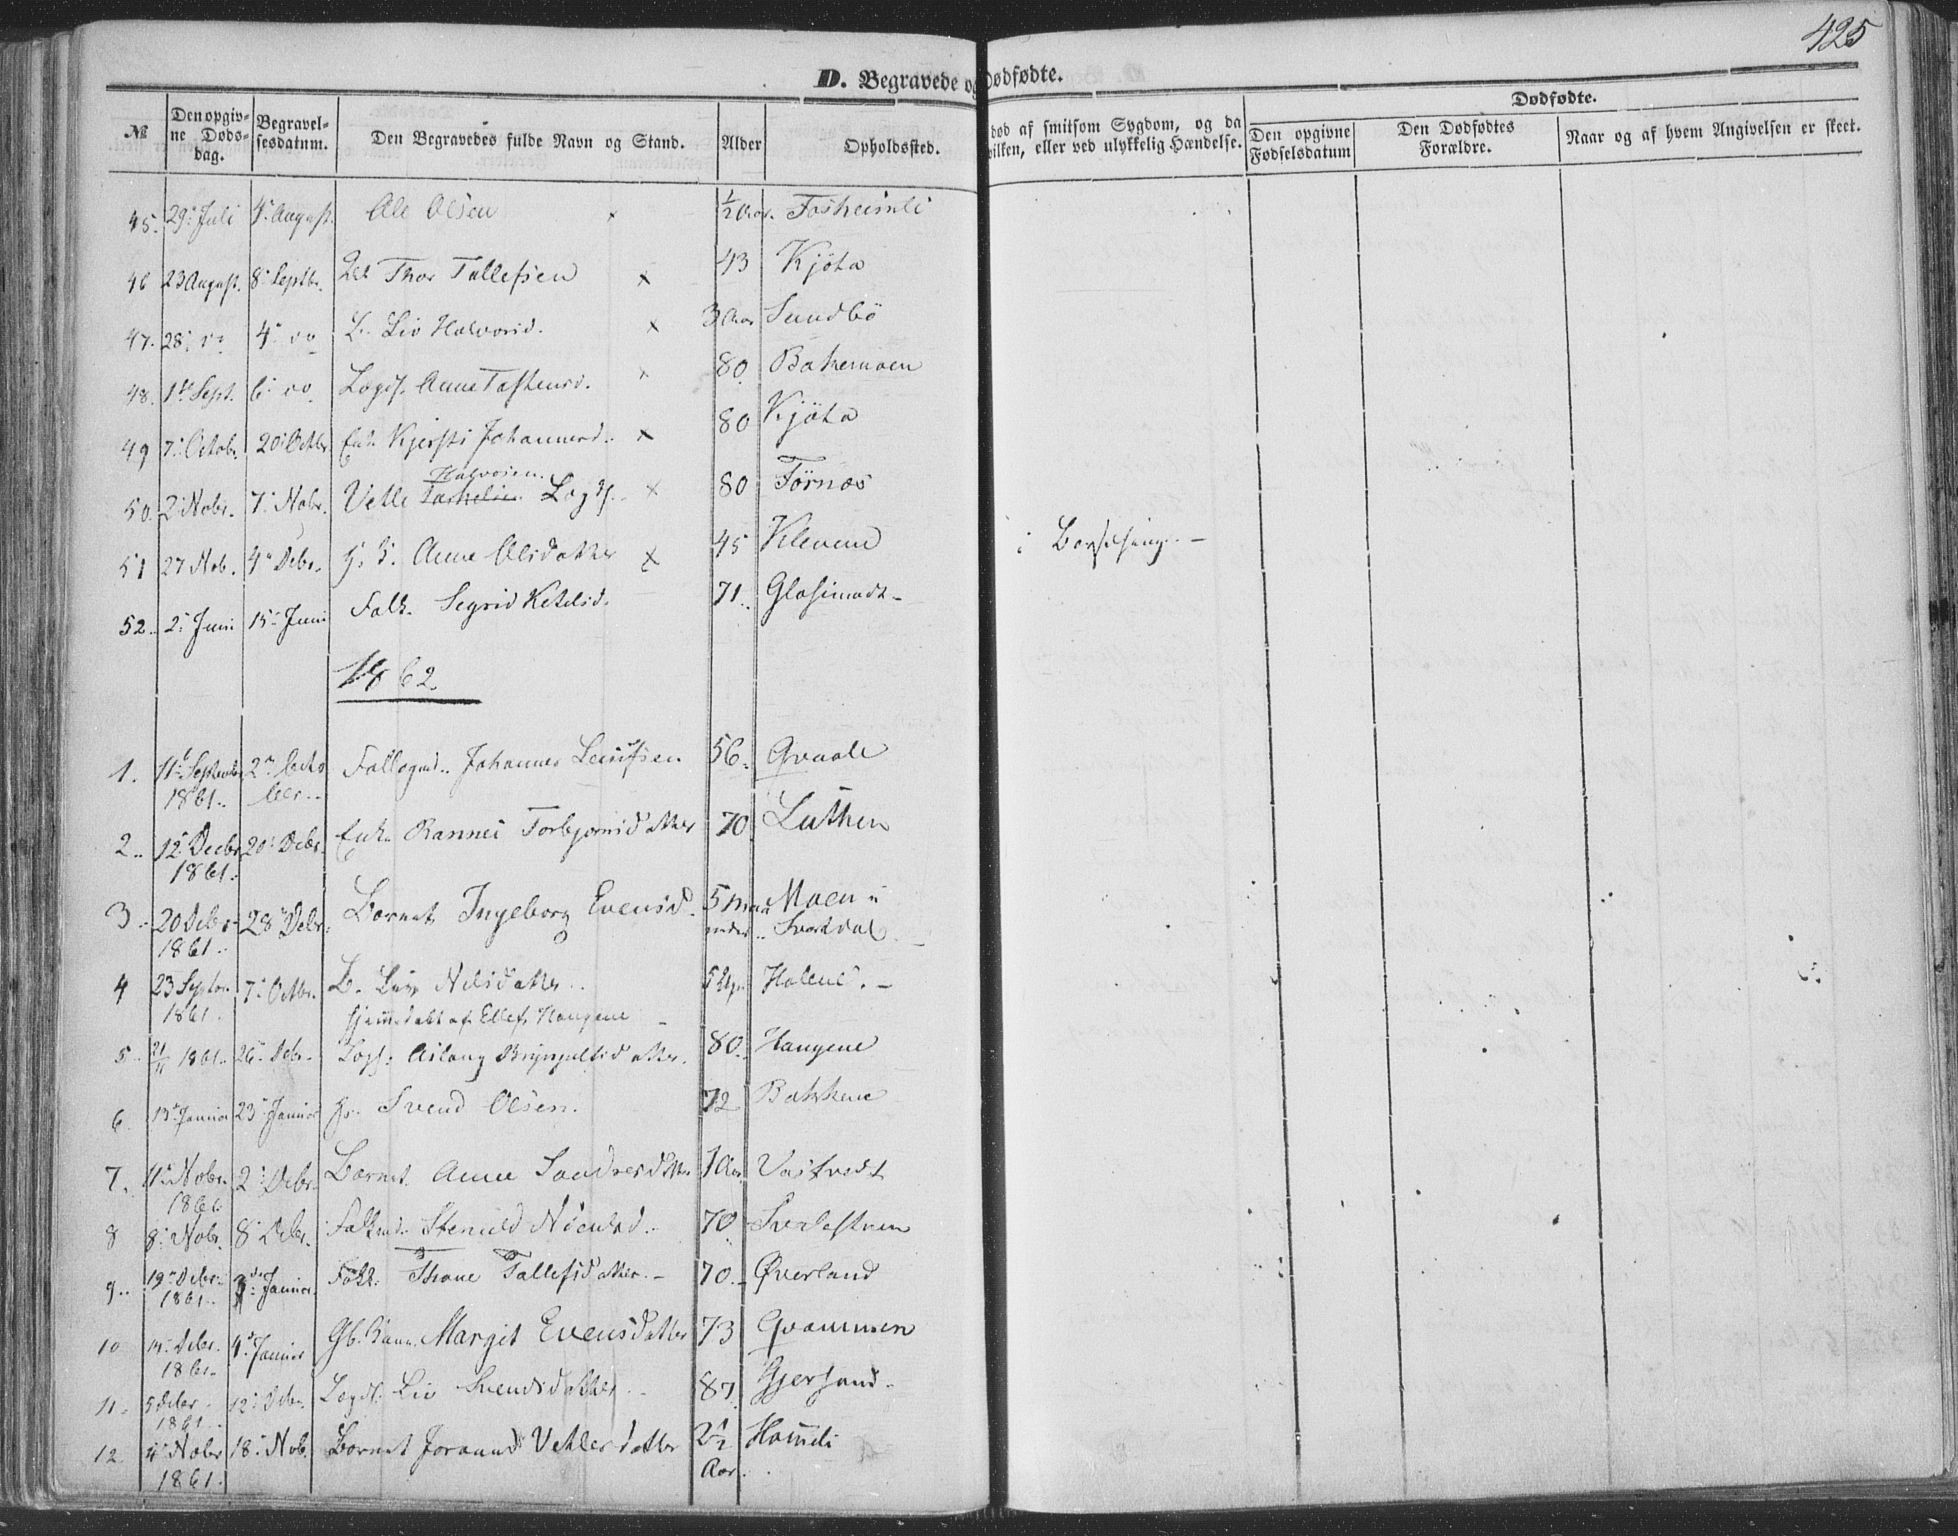 425
D. Begravede og Dødfødte.
№ Den opgivne Dødsdag. Begravelsesdatum. Den Begravedes fulde Navn og Stand. Alder Opholdssted. død af smitsom Sygdom, og da hvilken, eller ved ulykkelig Hændelse. Dødfødte. Den opgivne Fødselsdatum Den Dødfødtes Forældre. Naar og af hvem Angivelsen er skeet.
45. 29. Juli 4. August. Ole Olsen x ½ Aar. Fosheimli
46 23 August. 8. Septbr. Thor Tallefsen x 43 Kjøta
47. 28. do 4. do B. Liv Halvorsd. x 3 Aar Sundbö
48. 1ste Sept. 6. do. Lægdsl. Anne Tostensd. x 80. Bakemoen
49 7. Octobr. 20. Octbr Enk. Kjersti Johannesd. x 80 Kjöta
Halvorsen.
50. 2. Nobr. 7. Nobr. Vetle Lægdsl. x 80 Förnæs
51 27 Nob. 4. Debr. Anne Olsdatter x 45 Klevene i Barselseng. -
52. 2. Juni 15. Juni Folk. Segrid Ketilsd. 71. Glosimodt -
1862
1. 11. September 2. Octo Johannes Leifsen 56. Qvaale
1861. ber.
2. 12. Decbr 20. Debr. Enk. Rannei Torbjørnsdatter 70 Luthen
1861.
3. 20 Debr 28. Debr. Barnet Ingeborg Evensd. 5 Maa Moen i
1861. neder Svartdal
4 23 Septbr. 7. Octbr. B. Liv Nilsdatter 5 Halene. -
1861. hjemmedøbt af Ellef Haugene
5 21/11 1861. 26. Debr. Lægdsl. Aslaug Brynjulfsdatter. 80. Haugene
6. 13. Januar 23. Januar Svend Olsen. 72 Bakkene
7. 11. Nobr. 2. Debr. Barnet Anne Sondresdatter 1 Aar Vastvedt
1861.
8 8. Nobr. 8. Debr. 70
9. 19. Debr. 3. Januar. Folk. Thone Tallefsdatter. - 70. Øverland
1861.
10 Debr. 4. Januar Margit Evensdatter 73 Qvammen
1861.
11. 5 Debr 12. Debr. Lægdsl. Liv Svendsdatter. 87. Gjersund.
1861.
12. 4. Nobr 18. Nob. Barnet Joraand Vetlesdatter 2½ Hommli
1861. Aar.